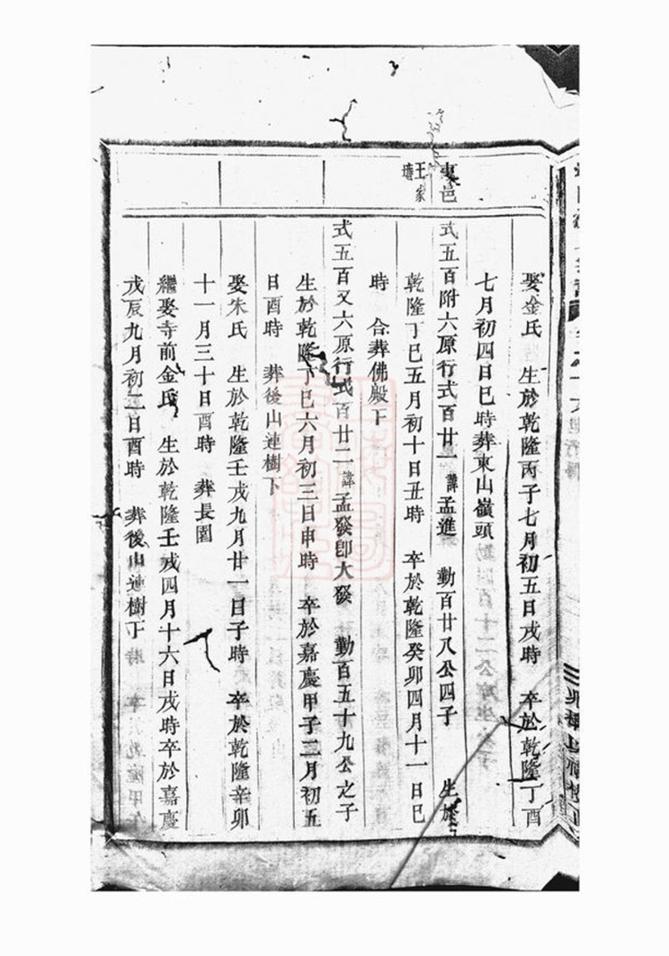 娶金氏 生於乾隆丙子七月初五日戌時 卒於乾隆丁酉
七月初四日巳時葬東山嶺頭
東邑
王家
塘
式五百附六原行式百廿一諱孟進 勤百廿八公四子 生於
乾隆丁巳五月初十日丑時 卒於乾隆癸卯四月十一日巳
時 合葬佛殿下
式五百又六原行式百廿二諱孟發印大發 勤百五十九公之子
生於乾隆丁巳六月初三日申時 卒於嘉慶甲子二月初五
日酉時 葬後山連樹下
娶朱氏 生於乾隆壬戌九月廿一日子時 卒於乾隆辛卯
十一月三十日酉時 葬長園
繼娶寺前金氏 生於乾隆壬戌四月十六日戌時卒於嘉慶
戊辰九月初二日酉時 葬後山連樹下